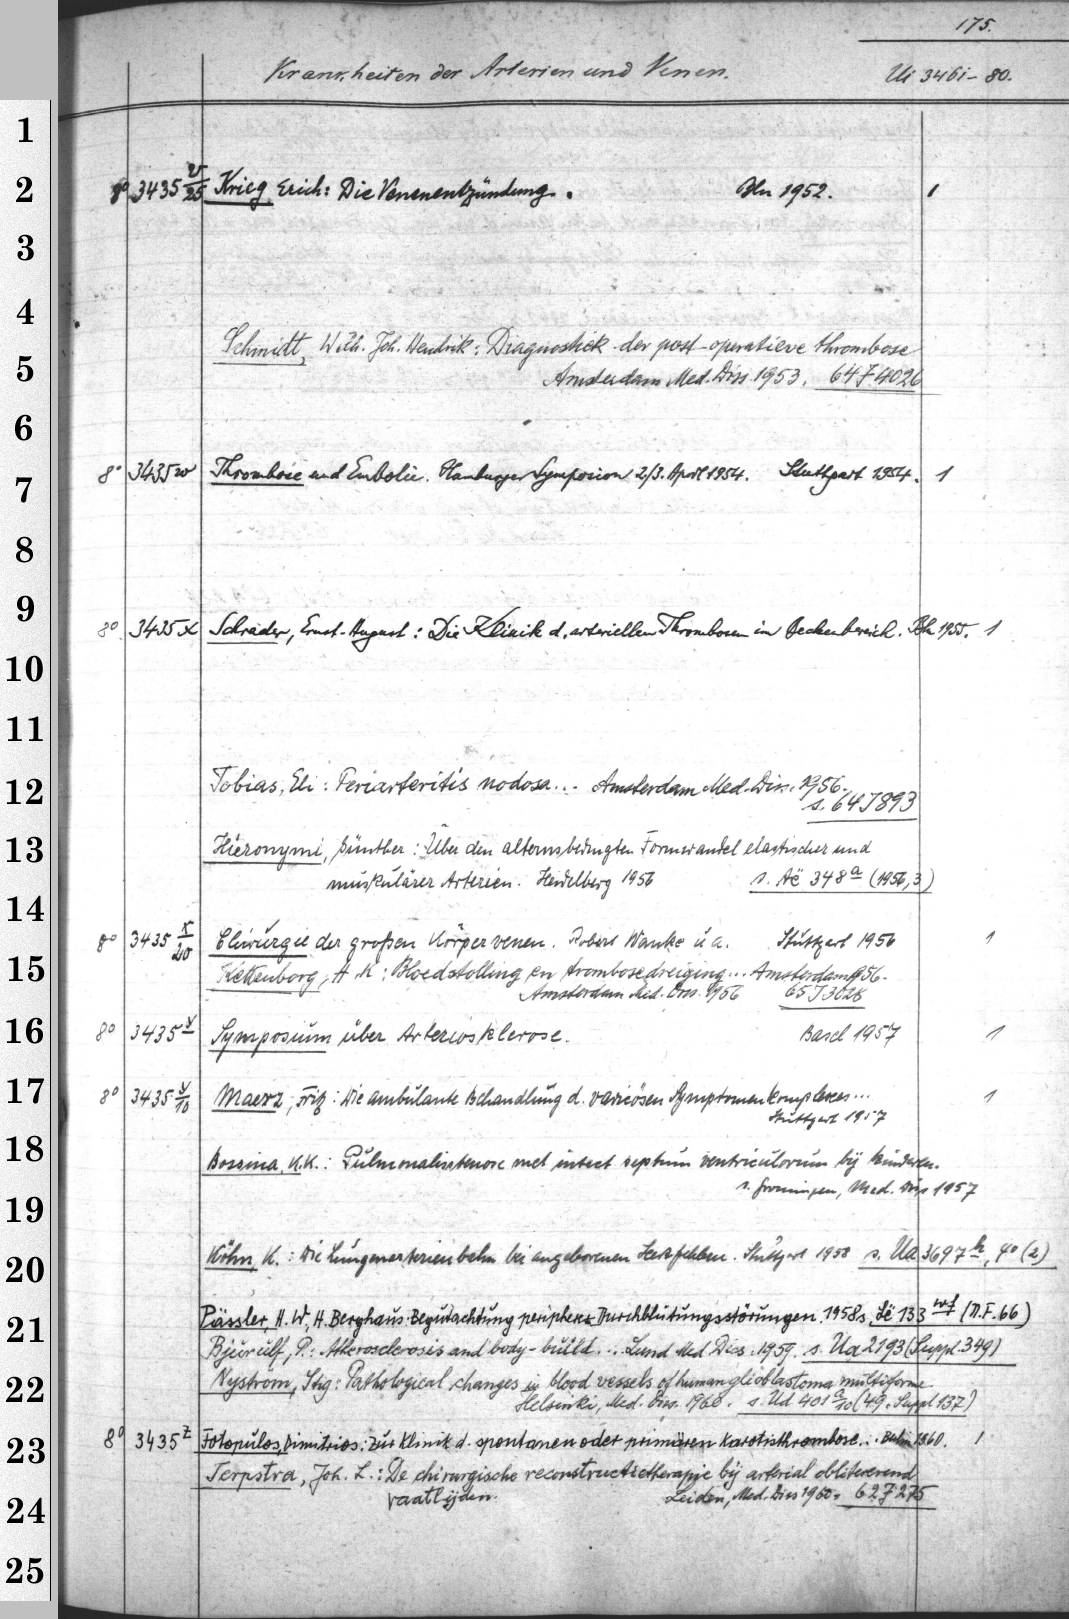 175.
Krankheiten der Arterien und Venen. Ui 3461-80.
1
2
8° 3435 v/25 Krieg, Erich: Die Venenentzündung. Bln 1952. 1
3
4
Schmidt, Wilh. Joh. Hendrik: Diagnostiek der post-operatieve thrombose
5
Amsterdam Med. Diss. 1953. 64 J 4026
6
7
8° 3435 w Thrombose und Embolie. Hamburger Symposion 2/3. April 1954. Stuttgart 1954. 1
8
9
8° 3435 x Schrader, Ernst-August: Die Klinik d. arteriellen Thrombosen im Beckenbereich. Bln 1955. 1
10
11
12
Tobias, Eli: Periarteritis nodosa... Amsterdam Med. Diss. 1956.
s. 64 J 893
13
Hieronymi, Günther: Über den alternsbedingten Formwandel elastischer und
muskulärer Arterien. Heidelberg 1956 s. Aë 348 a (1956, 3)
14
8° 3435 x/20 Chirurgie der großen Körpervenen. Robert Wanke u. a. Stuttgart 1956 1
15
Kettenborg, H K: Bloedstolling en trombosedreiging... Amsterdam 1956.
Amsterdam Med. Diss. 1956 65 J 3028
16
8° 3435 y Symposium über Arteriosklerose. Basel 1957 1
17
8° 3435 y/10 Maerz, Fritz: Die ambulante Behandlung d. varicösen Symptomenkomplexes...
Stuttgart 1957 1
18
Bossina, K.K.: Pulmonalisstenose met intact septum ventriculorum bij kinderen.
s. Groningen, Med. Diss 1957
19
20
Köhn, K.: Die Lungenarterienbahn bei angeborenen Herzfehlern. Stuttgart 1958 s. Ua 3697 h, 4° (2)
21
Pässler, H. W, H. Berghaus: Begutachtung peripherer Durchblutungsstörungen. 1958 s. Lë 133 wf (N.F. 66)
Bjurulf, P.: Atherosclerosis and body-build... Lund Med Diss. 1959. s. Ua 2193 (Suppl. 349)
22
Nystrom, Stig: Pathological changes in blood vessels of human glioblastoma multiforme
Helsinki, Med. Diss. 1960. s. Ud 401 a/10 (49. Suppl 137)
23
8° 3435 z Fotopulos, Dimitrios: Zur Klinik d. spontanen oder primären Karotisthrombose... Berlin 1960. 1
Terpstra, Joh. L.: De chirurgische reconstructietherapie bij arterial obliterend
24
vaatlijden. Leiden, Med. Diss 1960. 62 J 275
25